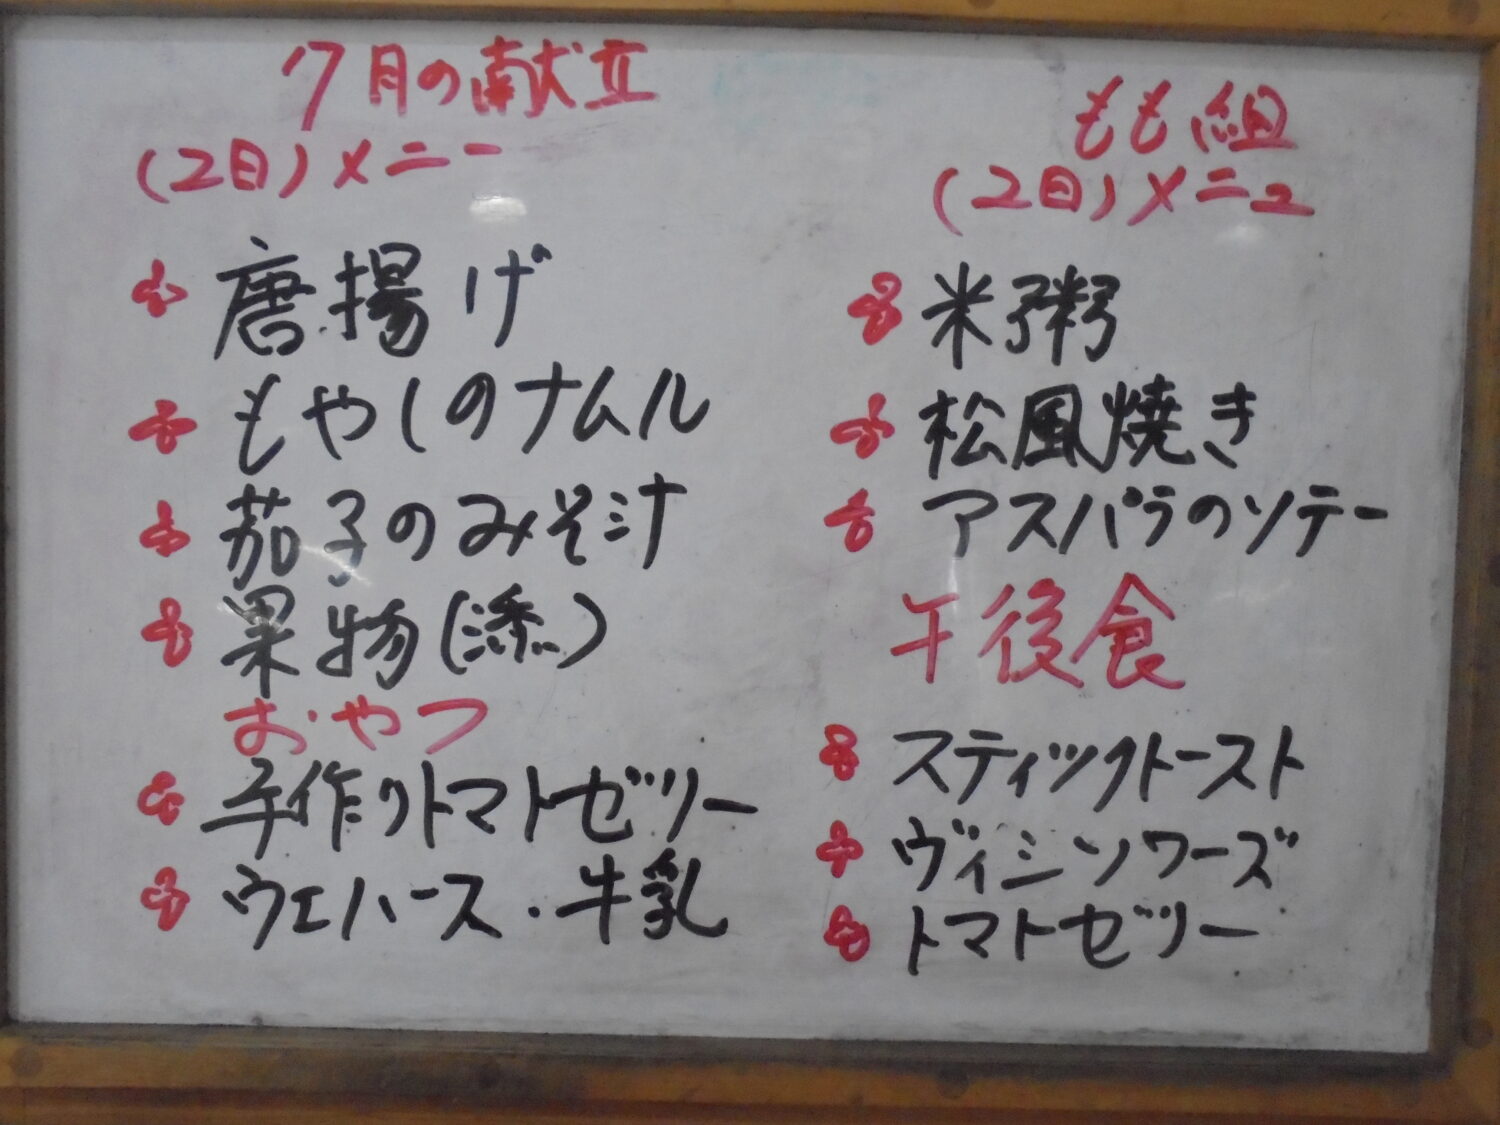 7月の献立
(2日)メニー
唐揚げ
もやしのナムル
茄子のみそ汁
果物(添)
おやつ
手作りトマトゼリー
ウエハース・牛乳
もも組
(2日)メニュ
米粥
松風焼き
アスパラのソテー
午後食
スティックトースト
ヴィシソワーズ
トマトゼリー